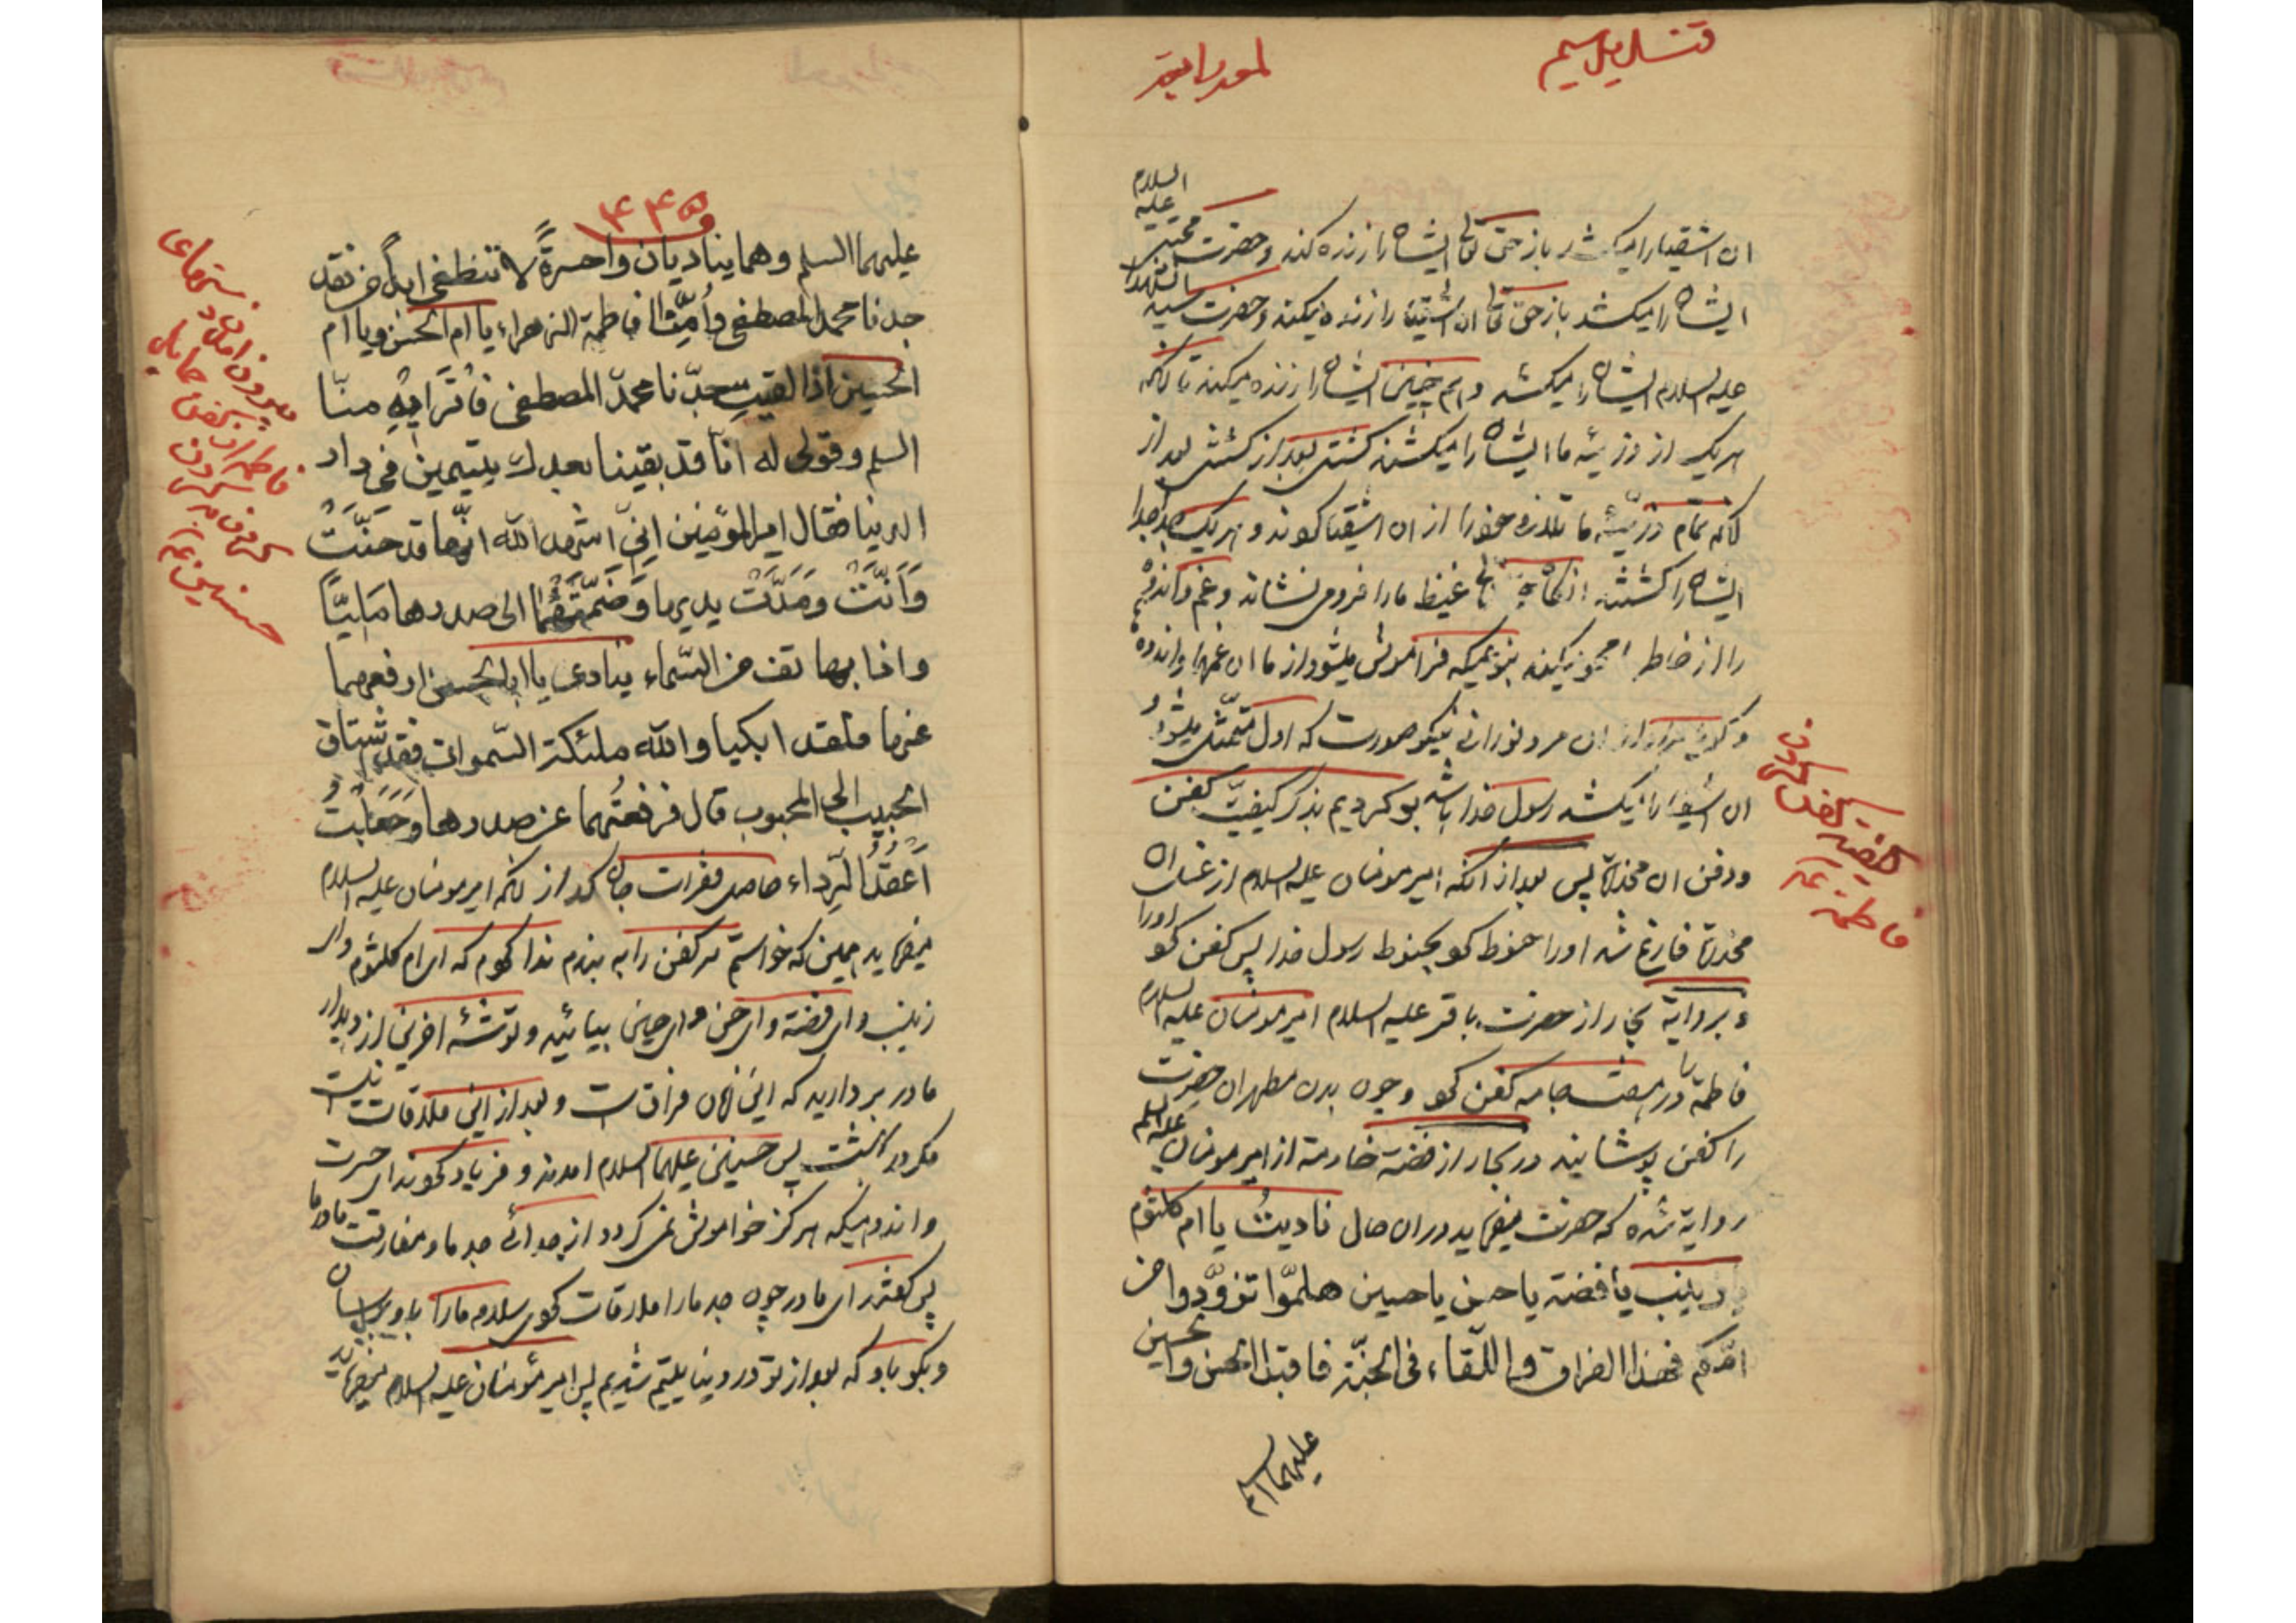 ان اشقیارا میکشد باز حق تعالی ایشان را زنده کند و حضرت مجتبی علیه السلام
ایشان را میکشد باز حق تعالی ان اشقیا را زنده میکند و حضرت سید الشهدا
علیه السلام ایشان را میکشد و هم چنین ایشان را زنده میکند تا انکه
هریک از ذریّه ما ایشان را میکشند کشتنی بعد از کشتنی بعد از
انکه تمام ذریّه ما تلافی خود را از ان اشقیا کردند و هریک جدا جدا
ایشان را کشتند حق تعالی غیظ ما را فرو می نشاند و غم و اندوه
را از خاطر محو میکند بنوعیکه فراموش میشود از ما ان غمها و اندوه
ان مرد نورانی نیکو صورت که اول متمثّل میشود
ان اشقیا را میکشد رسول خدا باشد بر کردیم بذکر کیفیّت کفن
ودفن ان مخدرّة پس بعد از آنکه امیر مومنان علیه السلام از غسل ان
مخدرّة فارغ شد اورا حنوط کرد بحنوط رسول خدا پس کفن کرد اورا
و بروایة بحار از حضرت باقر علیه السلام امیر مومنان علیه السلام
فاطمة را در هفت جامه کفن کرد و چون بدن مطهر ان حضرت
را کفن پوشانید در بحار از فضّة خادمة از امیر مومنان علیه السلم
روایة شده که حضرت میفرماید در ان حال نادیتُ یا ام کلثوم
یا زینب یا فضة یا حسن یا حسین هلمّوا تزوّدوا من
امّکم فهذا الفراق و اللّقاء فی الجنّة فاقبل الحسن والحسین
علیهما السلم
کیفیت کفن کردن
فاطمة
۱۴۴۵
علیهما السلم وهما ینادیان واحسرةً لا تنطفی ابداً من فقد
جدنا محمد المصطفی واُمِّنا فاطمة الزهراء یا ام الحسن ویا ام
الحسین اذا لقیتِ جدّنا محمّد المصطفی فاَقرَایهِ منّا
السلم وقولی له انّا قد بقینا بعدك یتیمین فی دار
الدنیا فقال امیر المؤمنین انّی اشهد الله انّها قد حَنَّتْ
وَاَنَّتْ ومَدَّتْ یدیها وَضَمَّتْهُما الی صدرها مَلِیّاً
واذا بهاتف من السّماء ینادی یا ابا الحسن ارفعهما
عنها فلقد ابکیا والله ملئکة السّموات فقد اشتاق
الحبیب الی المحبوب قال فرفعتُهما عن صدرها وجَعَلْتُ
اَعقدُ الرِّداء حاصل فقرات جان کداز انکه امیر مومنان علیه السلام
میفرماید همین که خواستم سر کفن را به بندم ندا کردم که ای ام کلثوم وای
زینب وای فضّة وای حسن وای حسین بیائید و توشهٔ اخرین از دیدار
مادر بردارید که این زمان فراق است و بعد از این ملاقات نیست
مکر در بهشت پس حسنین علیهما السلام امدند و فریاد کردند ای حسرت
واندوهیکه هرکز خواموش نمی کردد از جدائی جد ما و مفارقت مادر ما
پس کفتند ای مادر چون جد ما را ملاقات کردی سلام ما را باو برسان
وبکو باو که بعد از تو در دنیا یتیم شدیم پس امیر مؤمنان علیه السلام میفرماید